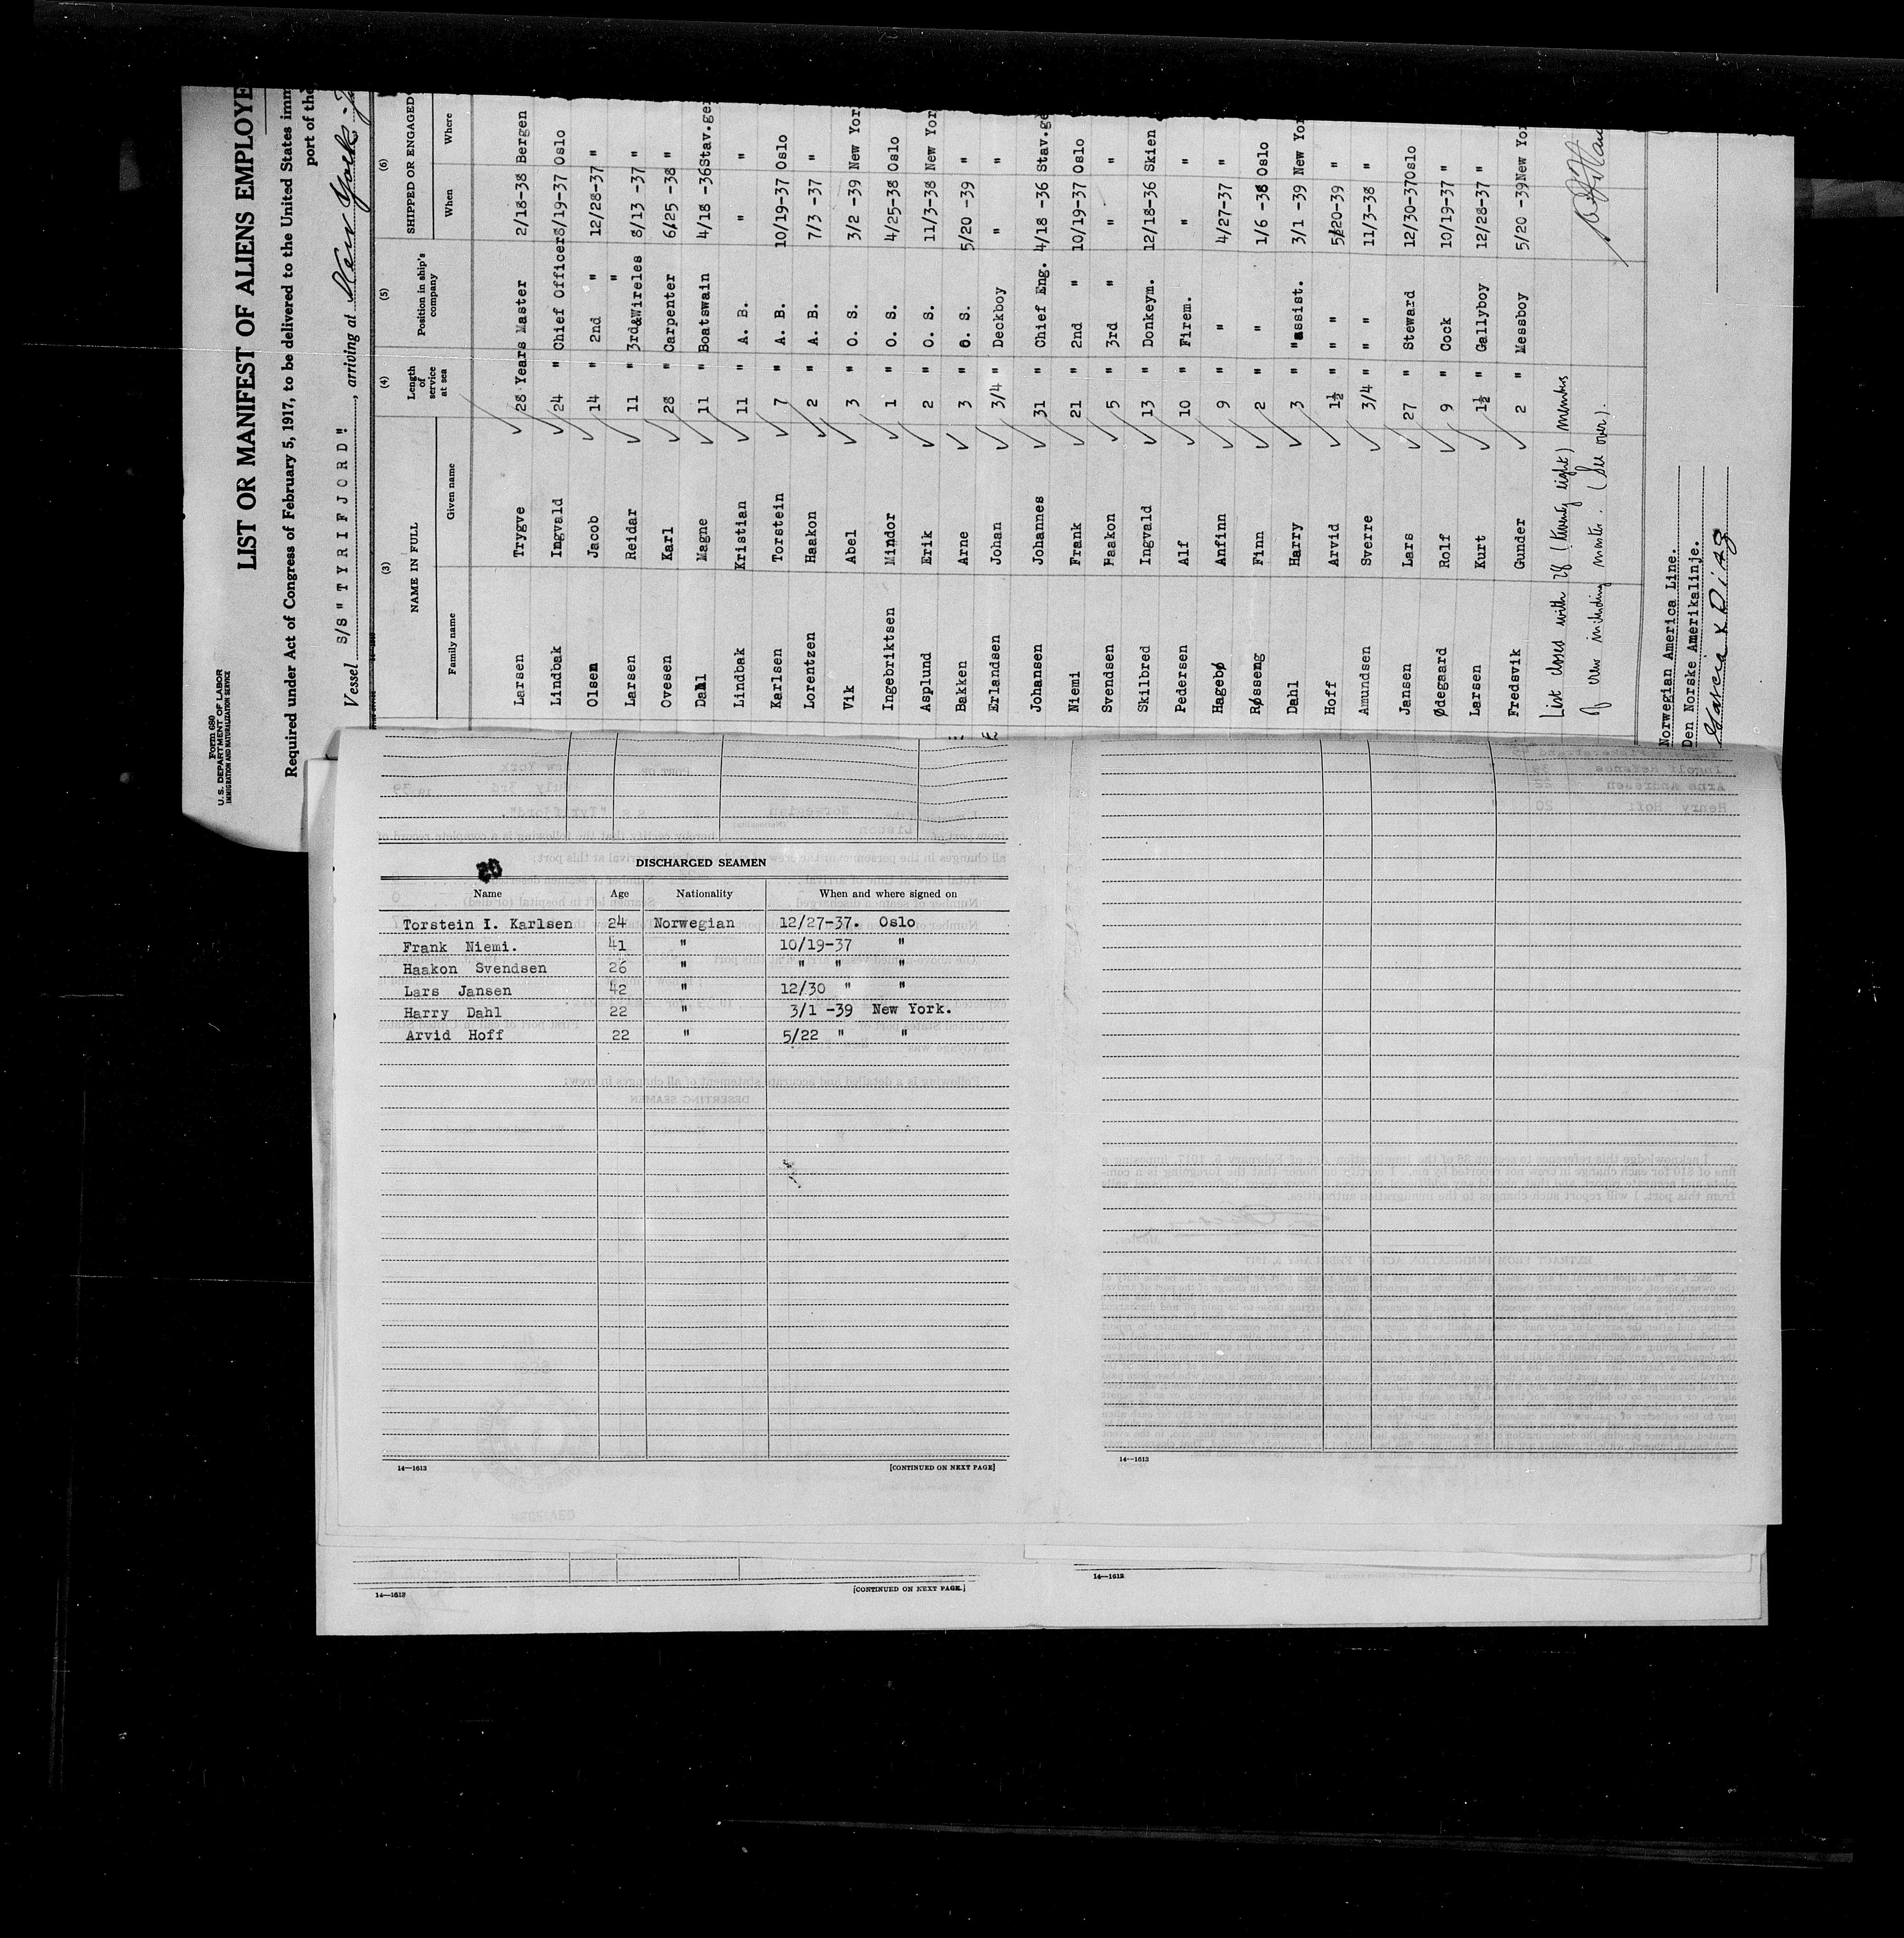 Form 680
U. S. DEPARTMENT OF LABOR
IMMIGRATION AND NATURALIZATION SERVICE
LIST OR MANIFEST OF ALIENS EMPLOYE
Required under Act of Congress of February 5, 1917, to be delivered to the United States imm
port of the
Vessel S/S "TYRIFJORD", arriving at New York
(3) (4) (5) (6)
NAME IN FULL Length of service at sea Position in ship's company SHIPPED OR ENGAGED
Family name Given name When Where
Larsen Trygve 28 Years Master 2/18-38 Bergen
Lindbak Ingvald 24 " Chief Officer 8/19-37 Oslo
Olsen Jacob 14 " 2nd " 12/28-37 "
Larsen Reidar 11 " 3rd&Wireles " 8/13 -37 "
Ovesen Karl 28 " Carpenter 6/25 -38 "
Dahl Magne 11 " Boatswain 4/18 -36 Stav.ge
Lindbak Kristian 11 " A. B. " "
Karlsen Torstein 7 " A. B. 10/19-37 Oslo
Lorentzen Haakon 2 " A. B. 7/3 -37 "
Vik Abel 3 " O. S. 3/2 -39 New Yor
Ingebriktsen Mindor 1 " O. S. 4/25-38 Oslo
Asplund Erik 2 " O. S. 11/3-38 New Yor
Bakken Arne 3 " O. S. 5/20 -39 "
Erlandsen Johan 3/4 " Deckboy " "
Johansen Johannes 31 " Chief Eng. 4/18 -36 Stav.ge
Niemi Frank 21 " 2nd " 10/19-37 Oslo
Svendsen Haakon 5 " 3rd " " "
Skilbred Ingvald 13 " Donkeym. 12/18-36 Skien
Pedersen Alf 10 " Firem. " "
Hagebø Anfinn 9 " " 4/27-37 "
Røsseng Finn 2 " " 1/6 -38 Oslo
Dahl Harry 3 " "assist. 3/1 -39 New Yor
Hoff Arvid 1½ " " " 5/20-39 "
Amundsen Sverre 3/4 " " " 11/3-38 "
Jansen Lars 27 " Steward 12/30-37 Oslo
Ødegaard Rolf 9 " Cock 10/19-37 "
Larsen Kurt 1½ " Gallyboy 12/28-37 "
Fredsvik Gunder 2 " Messboy 5/20 -39 New Yor
List closes with 28 (twenty eight) members
of crew including master. (See over).
Norwegian America Line.
Den Norske Amerikalinje.
Garcia & Diaz
DISCHARGED SEAMEN
Name Age Nationality When and where signed on
Torstein I. Karlsen 24 Norwegian 12/27-37. Oslo
Frank Niemi. 41 " 10/19-37 "
Haakon Svendsen 26 " " " "
Lars Jansen 42 " 12/30 " "
Harry Dahl 22 " 3/1 -39 New York.
Arvid Hoff 22 " 5/22 " "
14—1613 [CONTINUED ON NEXT PAGE]
14—1613
14—1613 [CONTINUED ON NEXT PAGE.]
14—1613